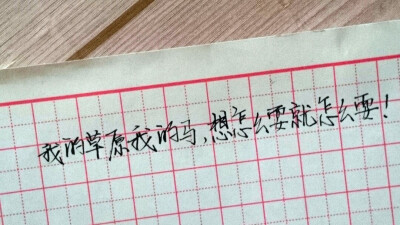 我的草原我的马,想怎么耍就怎么耍!